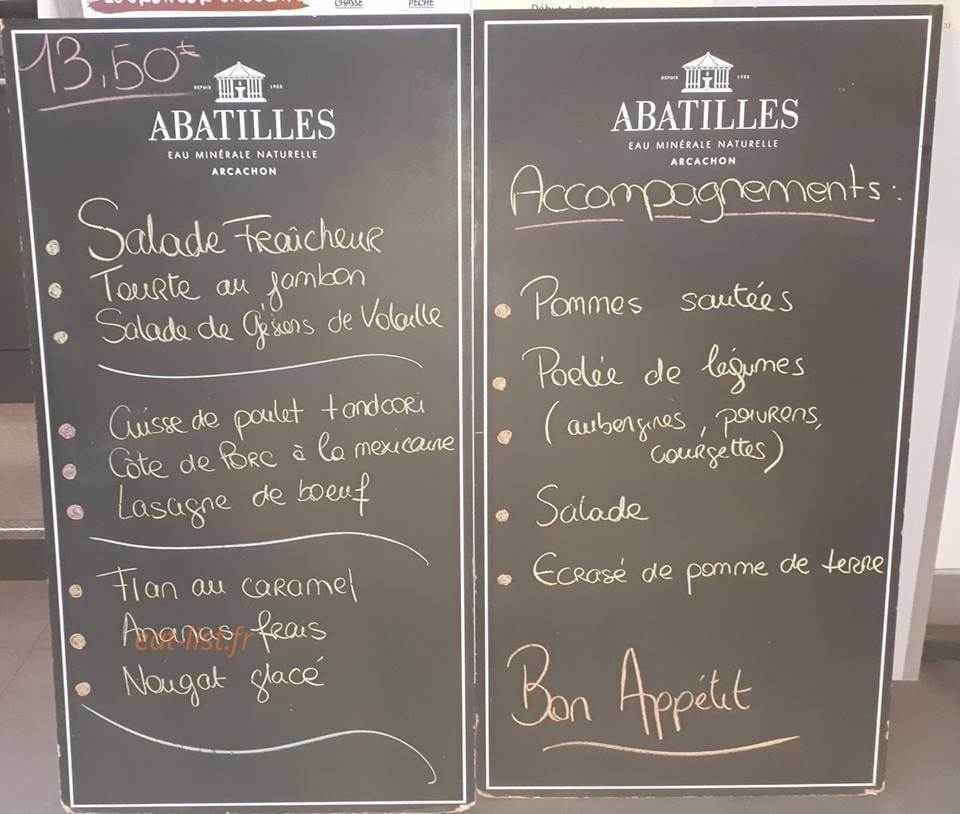 CHASSE
PÊCHE
13,50€
DEPUIS 1925
ABATILLES
EAU MINÉRALE NATURELLE
ARCACHON
Salade Fraîcheur
Tourte au jambon
Salade de Gésiers de Volaille
Cuisse de poulet tandoori
Côte de Porc à la mexicaine
Lasagne de boeuf
Flan au caramel
Ananas frais
eat-list.fr
Nougat glacé
DEPUIS 1925
ABATILLES
EAU MINÉRALE NATURELLE
ARCACHON
Accompagnements :
Pommes sautées
Poelée de légumes
(aubergines, poivrens,
courgettes)
Salade
Ecrasé de pomme de terre
Bon Appétit